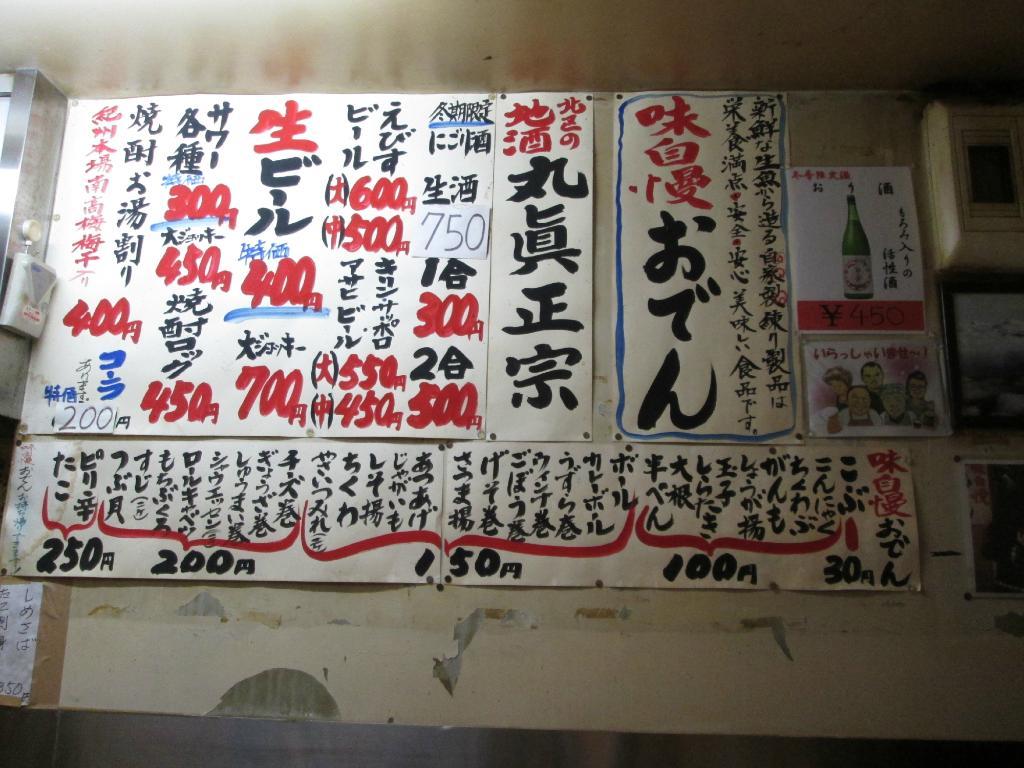 味自慢
おでん
新鮮な生魚から造る自家製練り製品は
栄養満点・安全・安心 美味しい食品です。
北区の
地酒
丸眞正宗
冬期限定
にごり酒
生酒
750
1合
300円
2合
500円
えびす
ビール
(大)600円
(中)500円
キリンサッポロ
アサヒビール
(大)550円
(中)450円
生
ビール
特価
400円
大ジョッキー
700円
サワー
各種
特価
300円
大ジョッキー
450円
焼酎ロック
450円
焼酎お湯割り
紀州本場南高梅梅干入り
400円
コーラ
あります
特価
200円
冬季限定酒
おり酒
もろみ入りの
活性酒
¥450
いらっしゃい毎せ〜!
味自慢おでん
こぶ
30円
こんにゃく
ちくわぶ
がんも
しょうが揚
玉子
しらたき
大根
半ぺん
100円
ボール
カレーボール
うずら巻
ウィンナ巻
ごぼう巻
げそ巻
さつま揚
あつあげ
じゃがいも
しそ揚
ちくわ
やさいつみれ(二ケ)
150円
チーズ巻
ぎょうざ巻
しゅうまい巻
シャウエッセン(二ケ)
ロールキャベツ
もちぶくろ
すじ(二ケ)
つぶ貝
200円
ピリ辛
たこ
250円
しめさば
350円